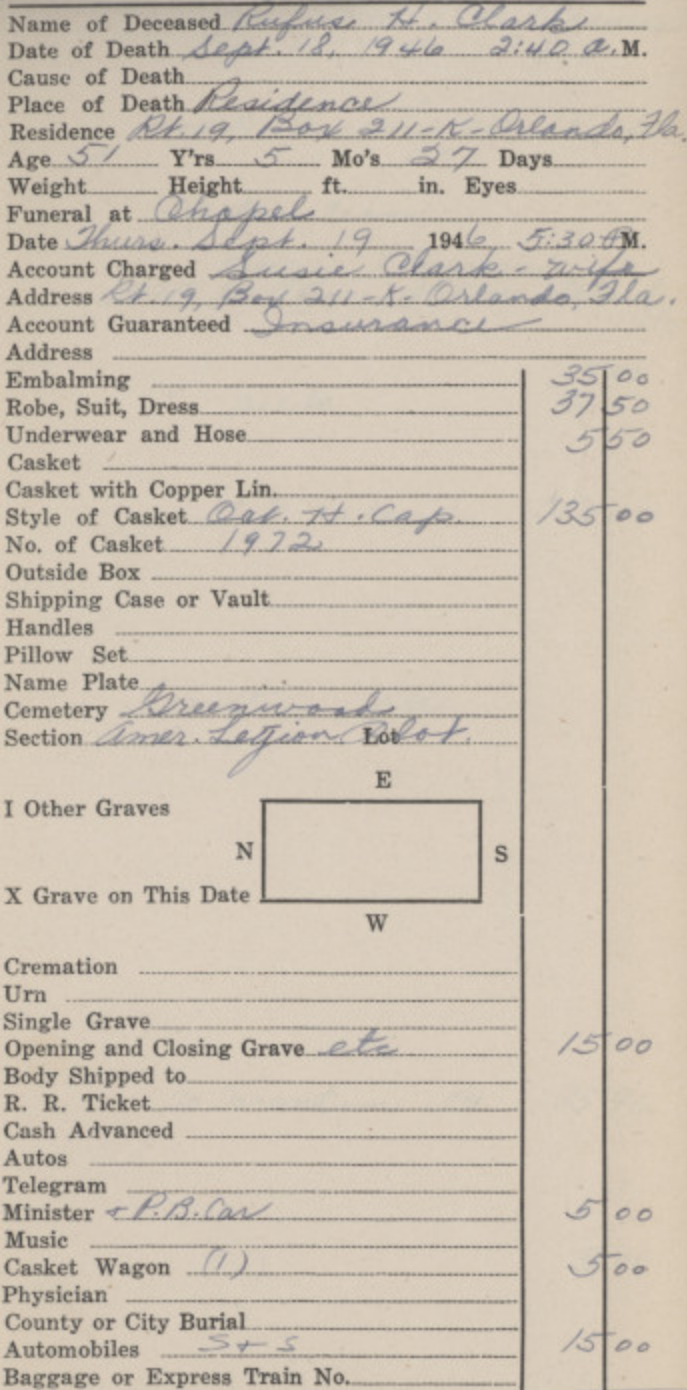 Name of Deceased Rufus H. Clark
Date of Death Sept. 18, 1946 2:40 a.M.
Cause of Death
Place of Death Residence
Residence Rt. 19, Box 211-K- Orlando, Fla.
Age 51 Y'rs 5 Mo's 27 Days
Weight Height ft. in. Eyes
Funeral at Chapel
Date Thurs. Sept. 19 1946 5:30 PM.
Account Charged Susie Clark - wife
Address Rt. 19, Box 211-K- Orlando, Fla.
Account Guaranteed Insurance
Address
Embalming 35 00
Robe, Suit, Dress 37 50
Underwear and Hose 5 50
Casket
Casket with Copper Lin.
Style of Casket Oct. H. Cap. 135 00
No. of Casket 1972
Outside Box
Shipping Case or Vault
Handles
Pillow Set
Name Plate
Cemetery Greenwood
Section Amer. Legion Lot Plot.
E
I Other Graves
N S
X Grave on This Date
W
Cremation
Urn
Single Grave
Opening and Closing Grave etc 15 00
Body Shipped to
R. R. Ticket
Cash Advanced
Autos
Telegram
Minister + P.B. Car 5 00
Music
Casket Wagon (1) 5 00
Physician
County or City Burial
Automobiles S + S 15 00
Baggage or Express Train No.